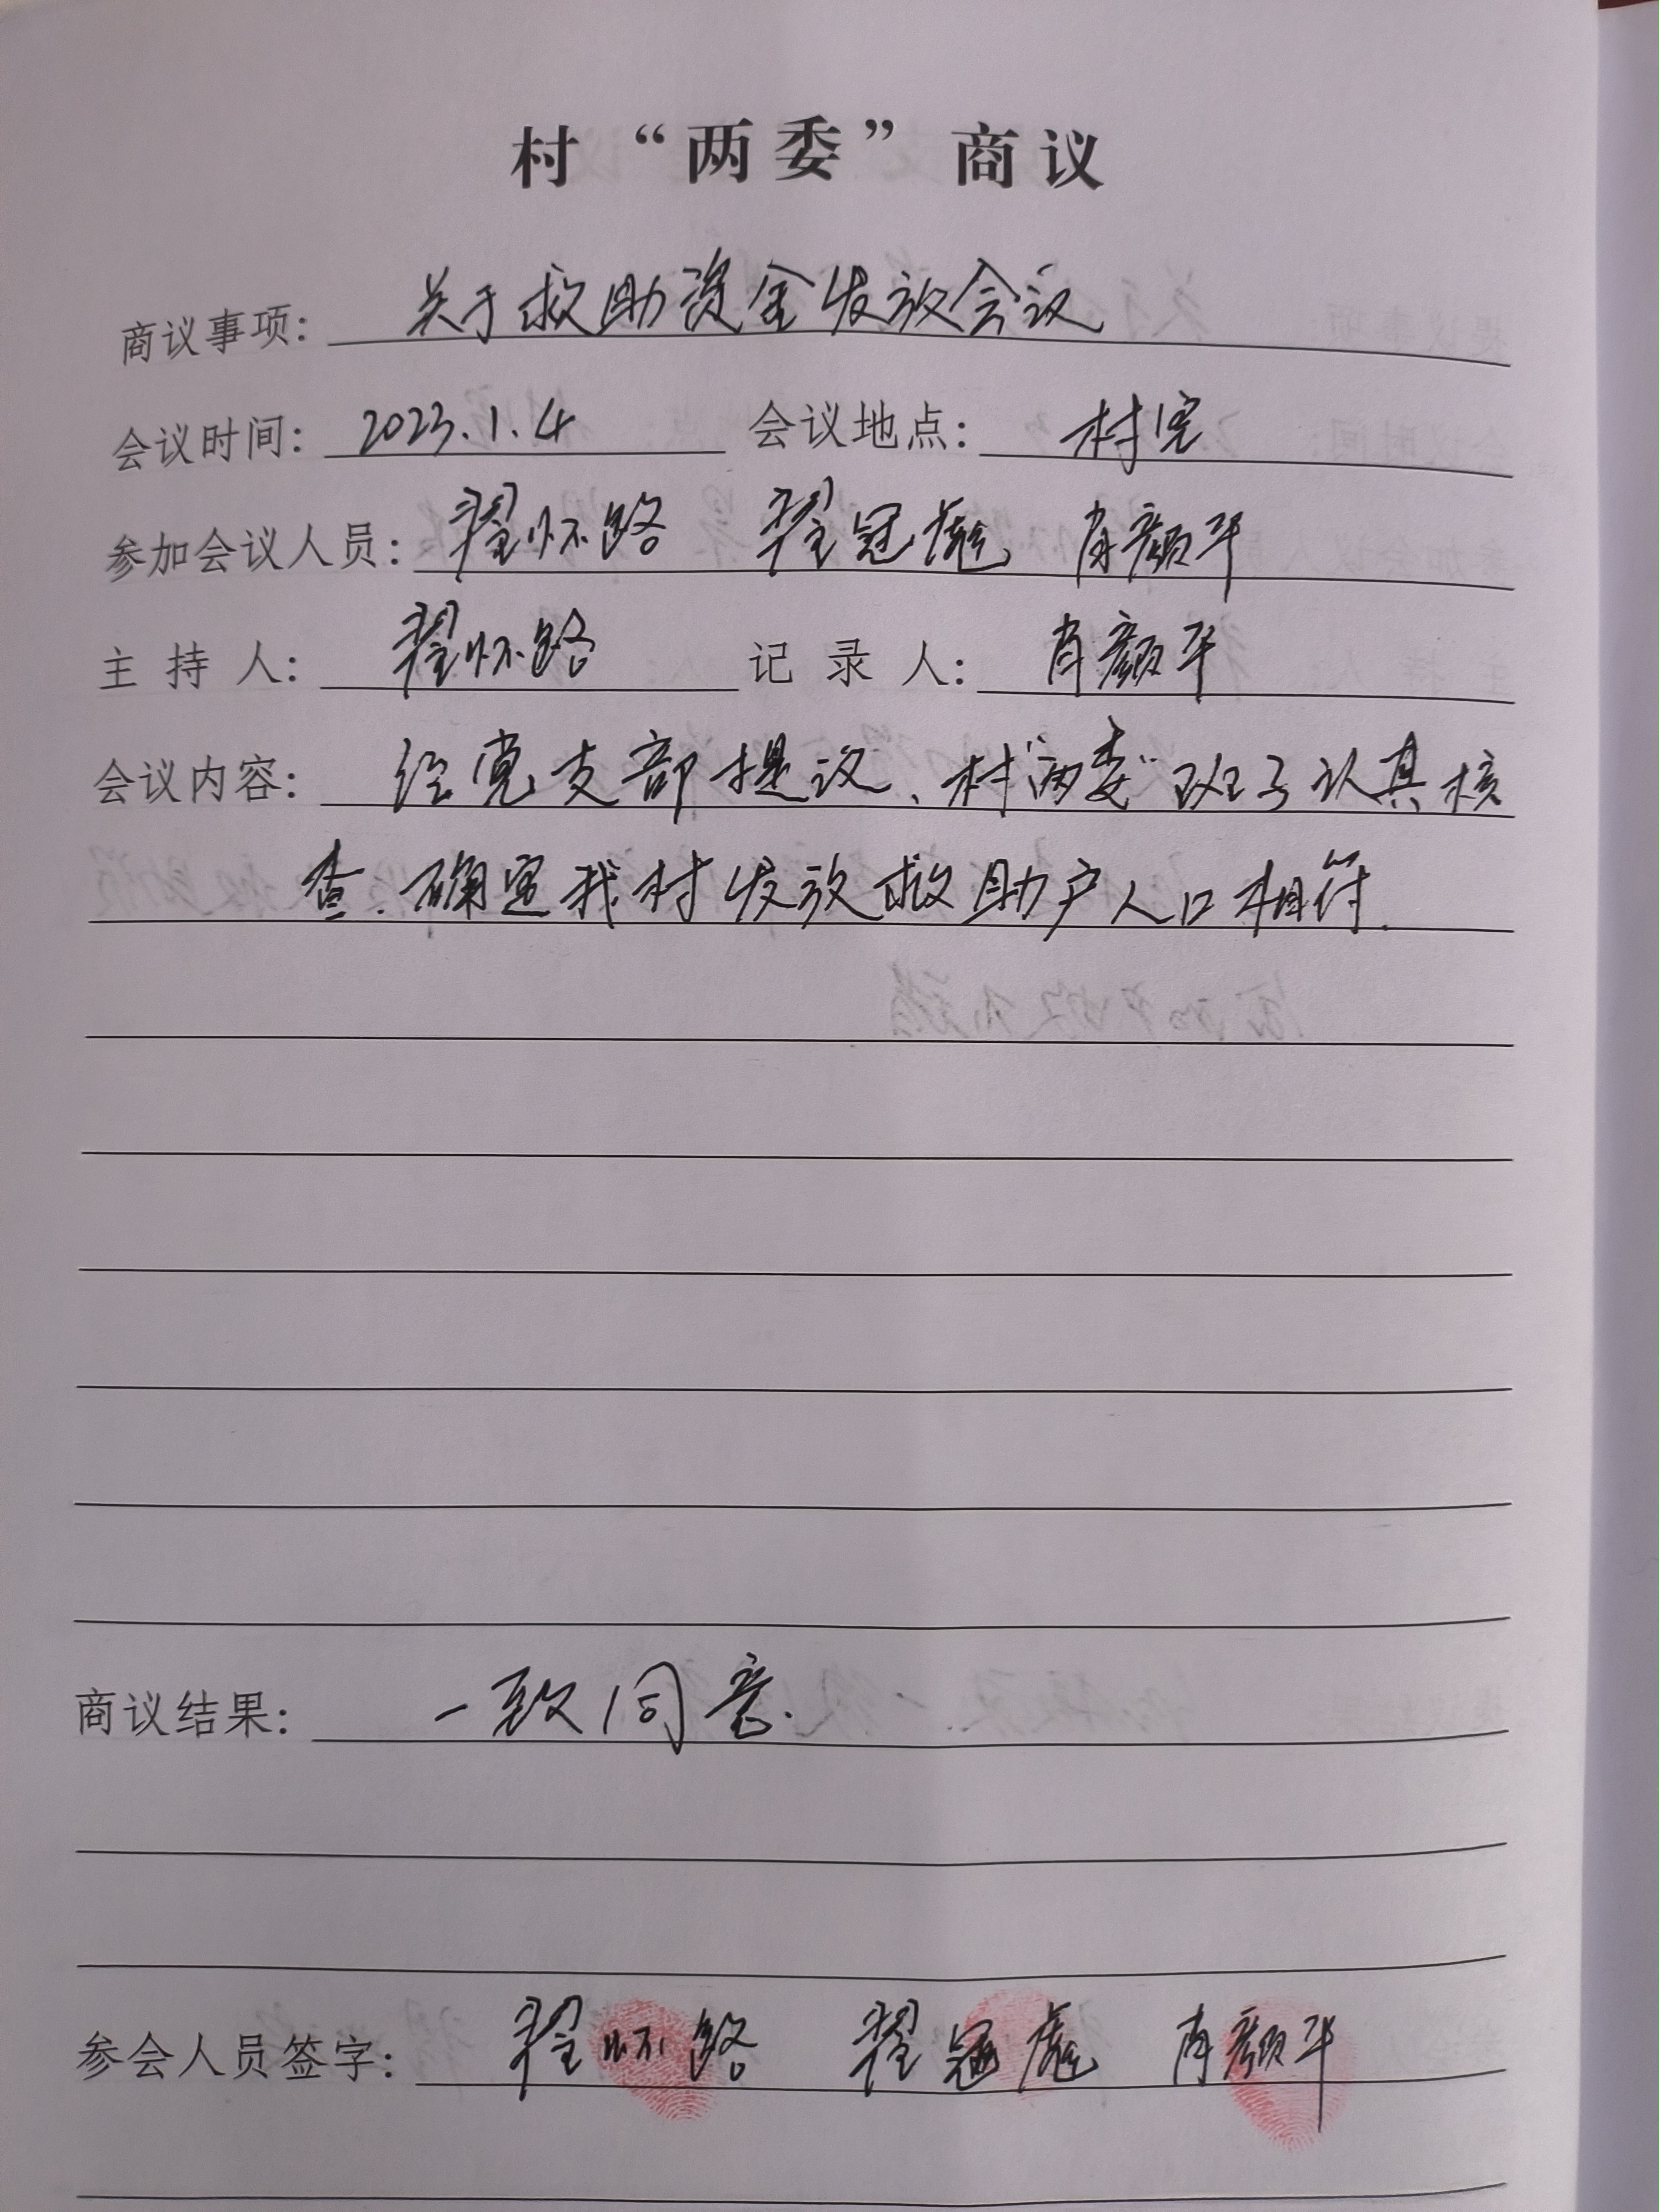 村“两委”商议
商议事项：关于救助资金发放会议
会议时间：2023.1.4 会议地点：村室
参加会议人员：翟怀路 翟冠彪 肖颜平
主持人：翟怀路 记录人：肖颜平
会议内容：经党支部提议、村“两委”班子认真核
查.确定我村发放救助户人口相符.
商议结果：一致同意.
参会人员签字：翟怀路 翟冠彪 肖颜平